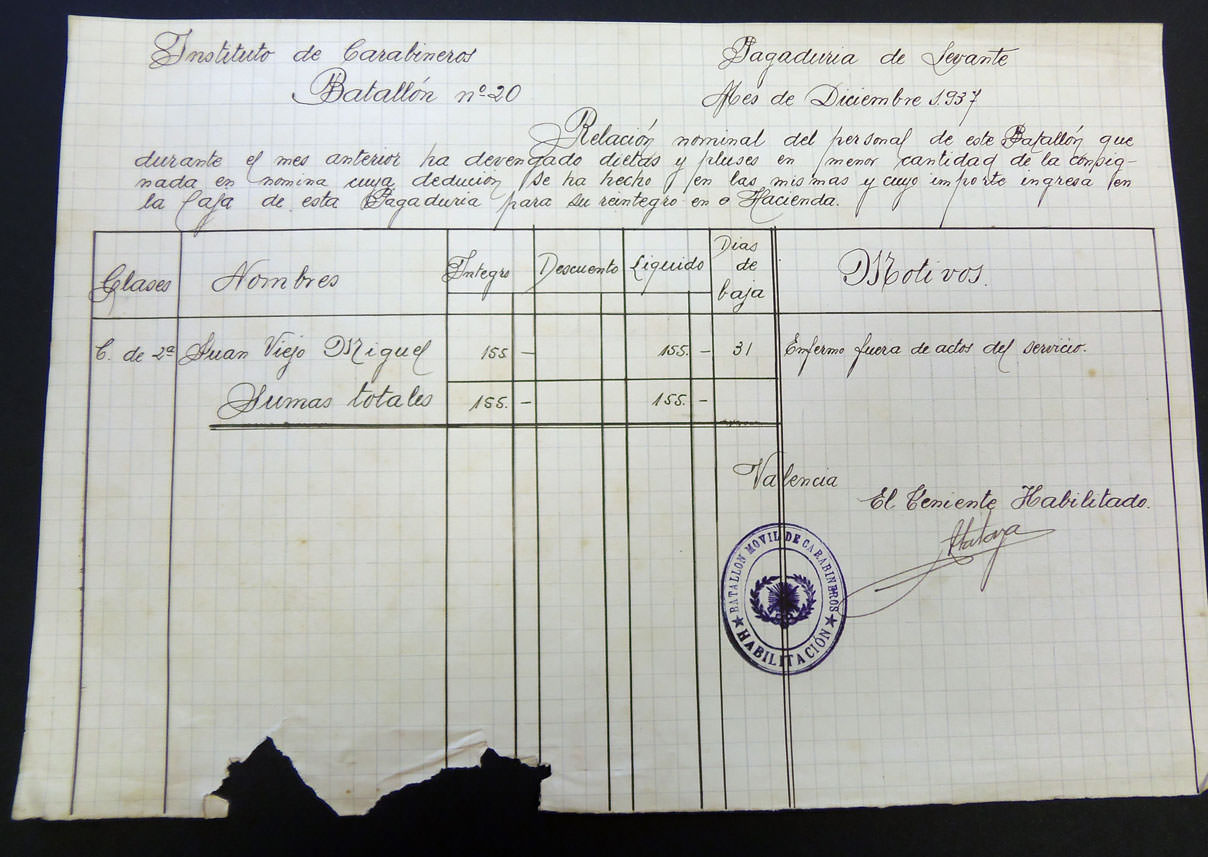 Instituto de Carabineros
Batallón nº 20
Pagaduria de Levante
Mes de Diciembre 1.937
Relación nominal del personal de este Batallón que
durante el mes anterior ha devengado dietas y pluses en menor cantidad de la consig-
nada en nomina cuya dedución se ha hecho en las mismas y cuyo importe ingresa en
la Caja de esta Pagaduria para su reintegro en Hacienda.
Clases Nombres Integro Descuento Liquido Dias de baja Motivos.
C. de 2ª Juan Viejo Miguel 155. - 155. - 31 Enfermo fuera de actos del servicio.
Sumas totales 155. - 155. -
Valencia
El Teniente Habilitado.
BATALLON MOVIL DE CARABINEROS
HABILITACIÓN